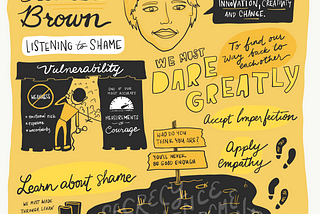 Brown
LISTENING to SHAME
INNOVATION, CREATIVITY
AND CHANGE.
To find our
way back to
each other
WE MUST
DARE
GREATLY
Vulnerability
WEAKNESS
emotional risk
exposure
uncertainty
ONE OF OUR
MOST ACCURATE
MEASUREMENTS
OF
Courage
Accept Imperfection
WHO DO YOU
THINK YOU ARE?
YOU'LL NEVER
BE GOOD ENOUGH
Apply
empathy
Learn about shame
WE MUST WALK
THROUGH